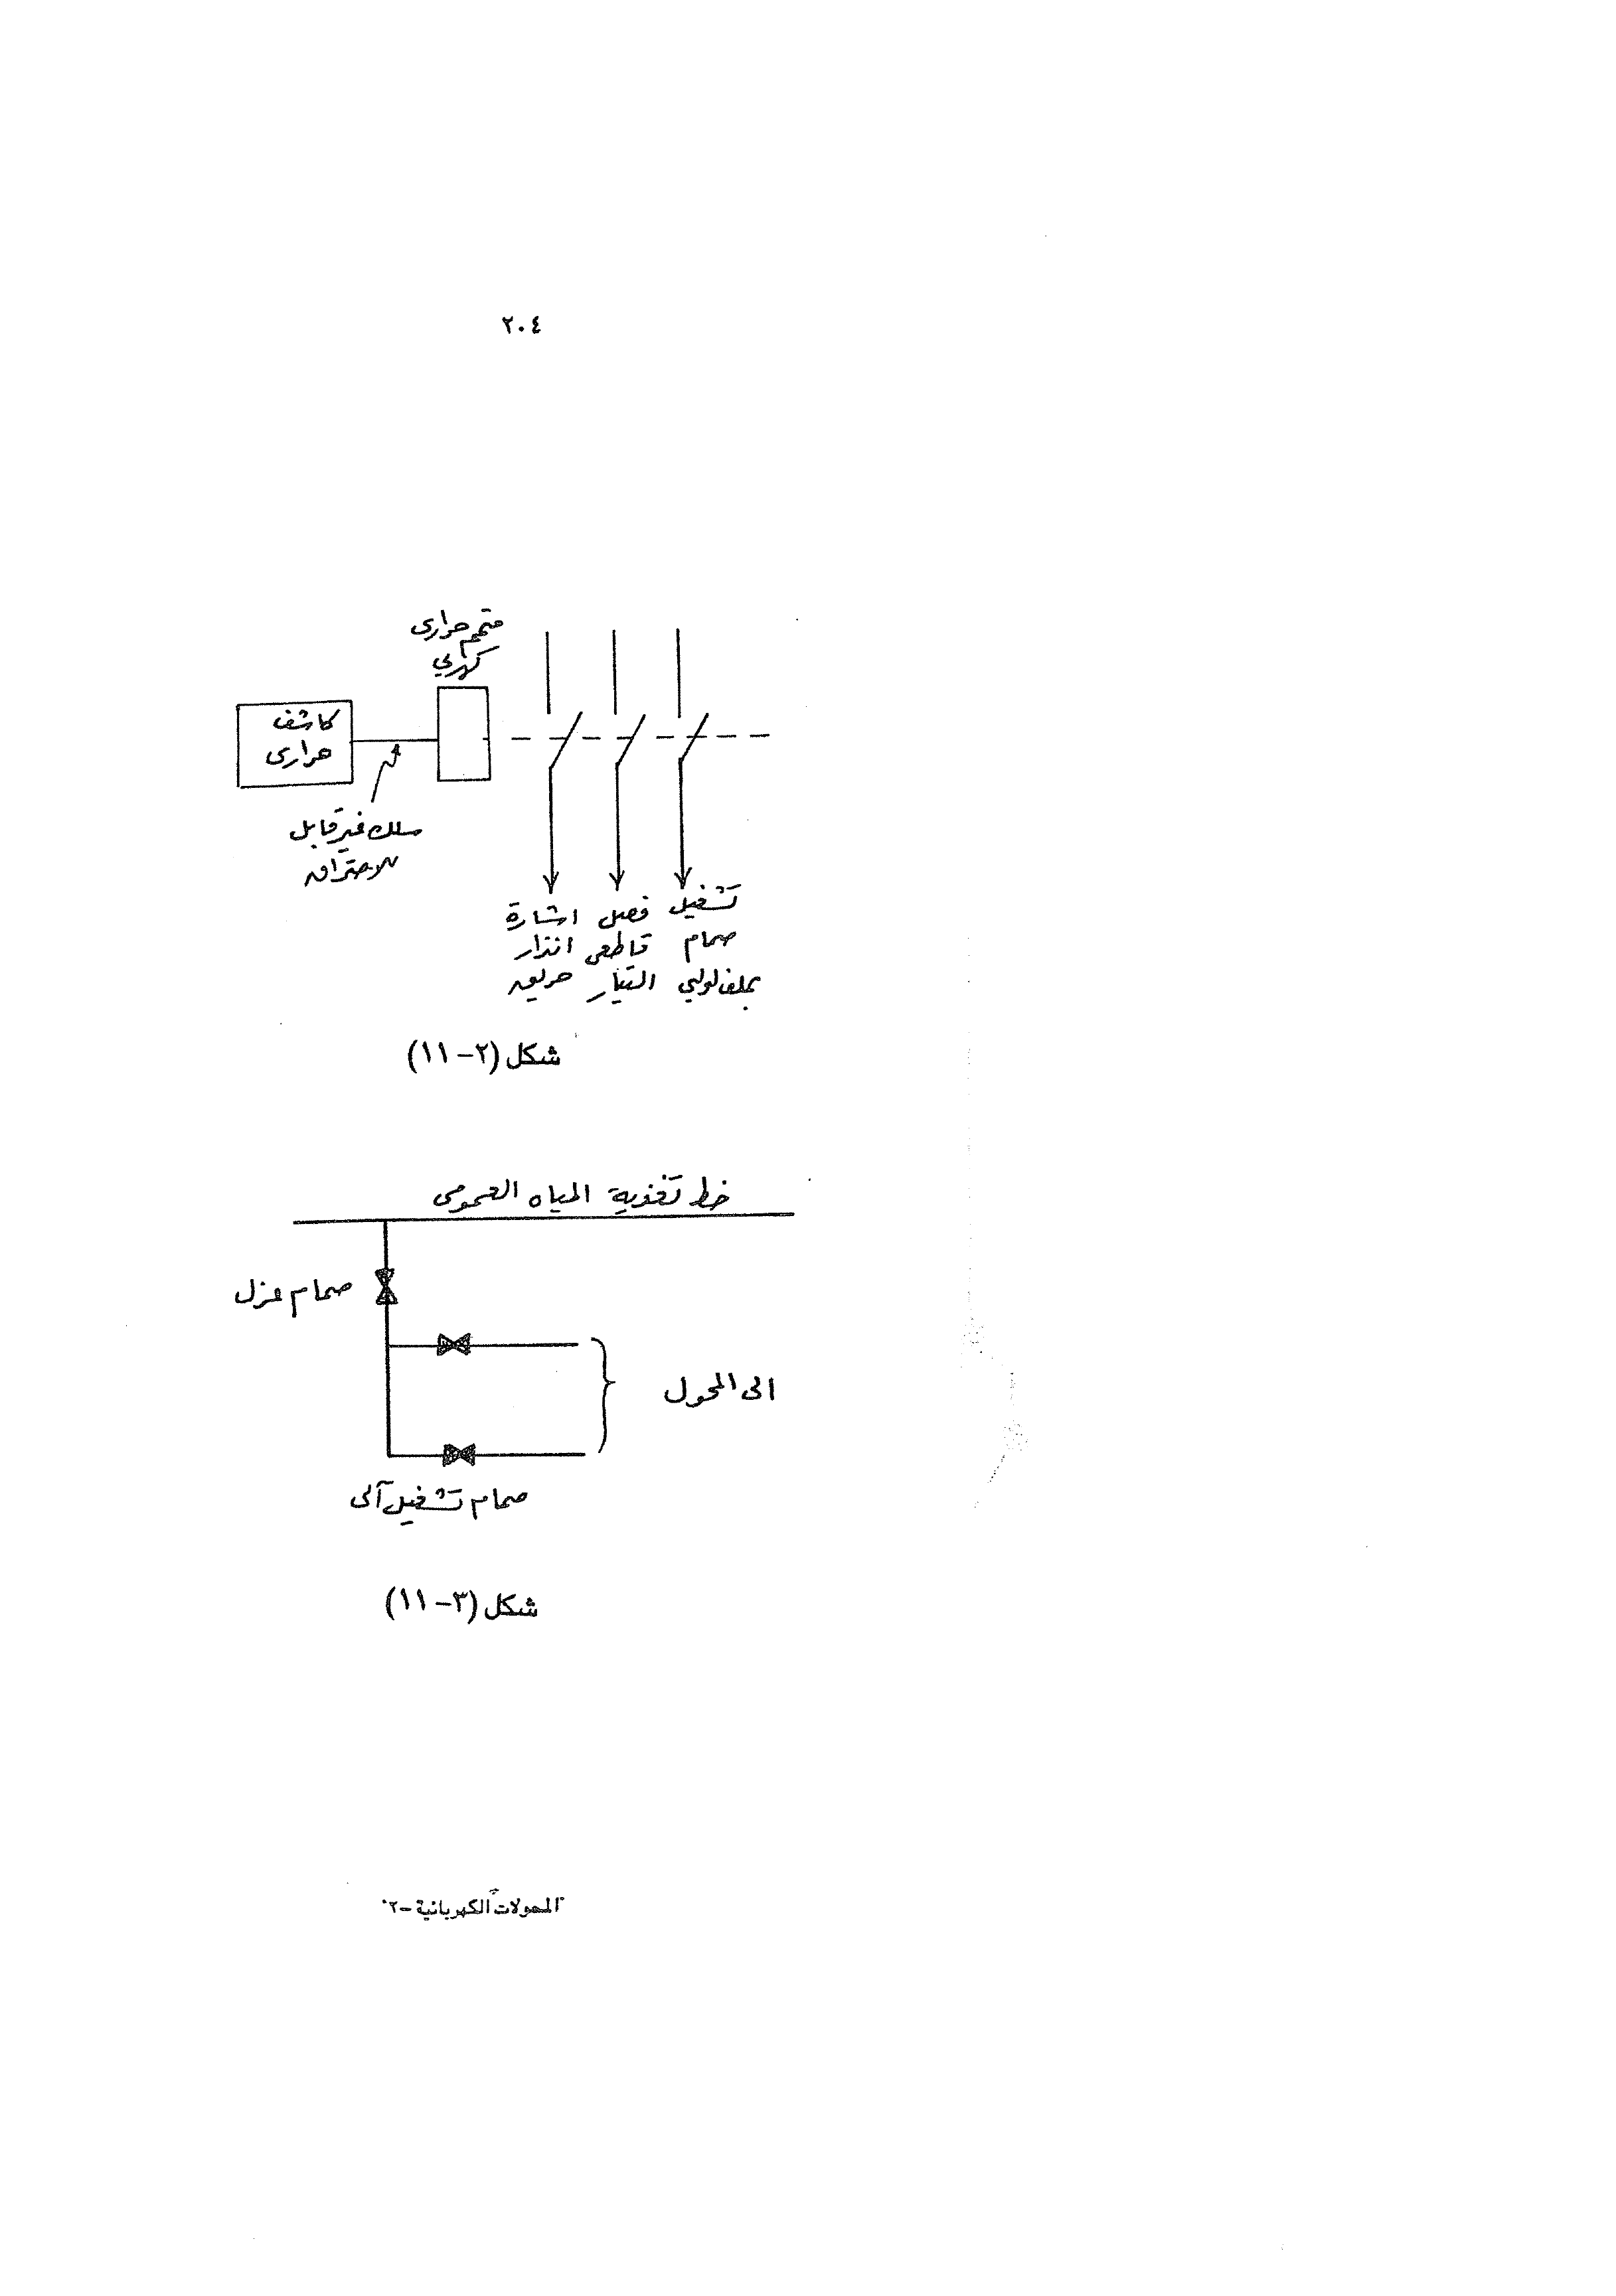 ٢٠٤
متمم حراري
كهربي
كاشف
حراري
سلك غير قابل
للاحتراق
تشغيل
صمام
بملف لولبي
فصل
قاطعي
التيار
اشارة
انذار
حريق
شكل (٢-١١)
خط تغذية المياه العمومى
صمام عزل
الى المحول
صمام تشغيل آلى
شكل (٣-١١)
المحولات الكهربائية -٢